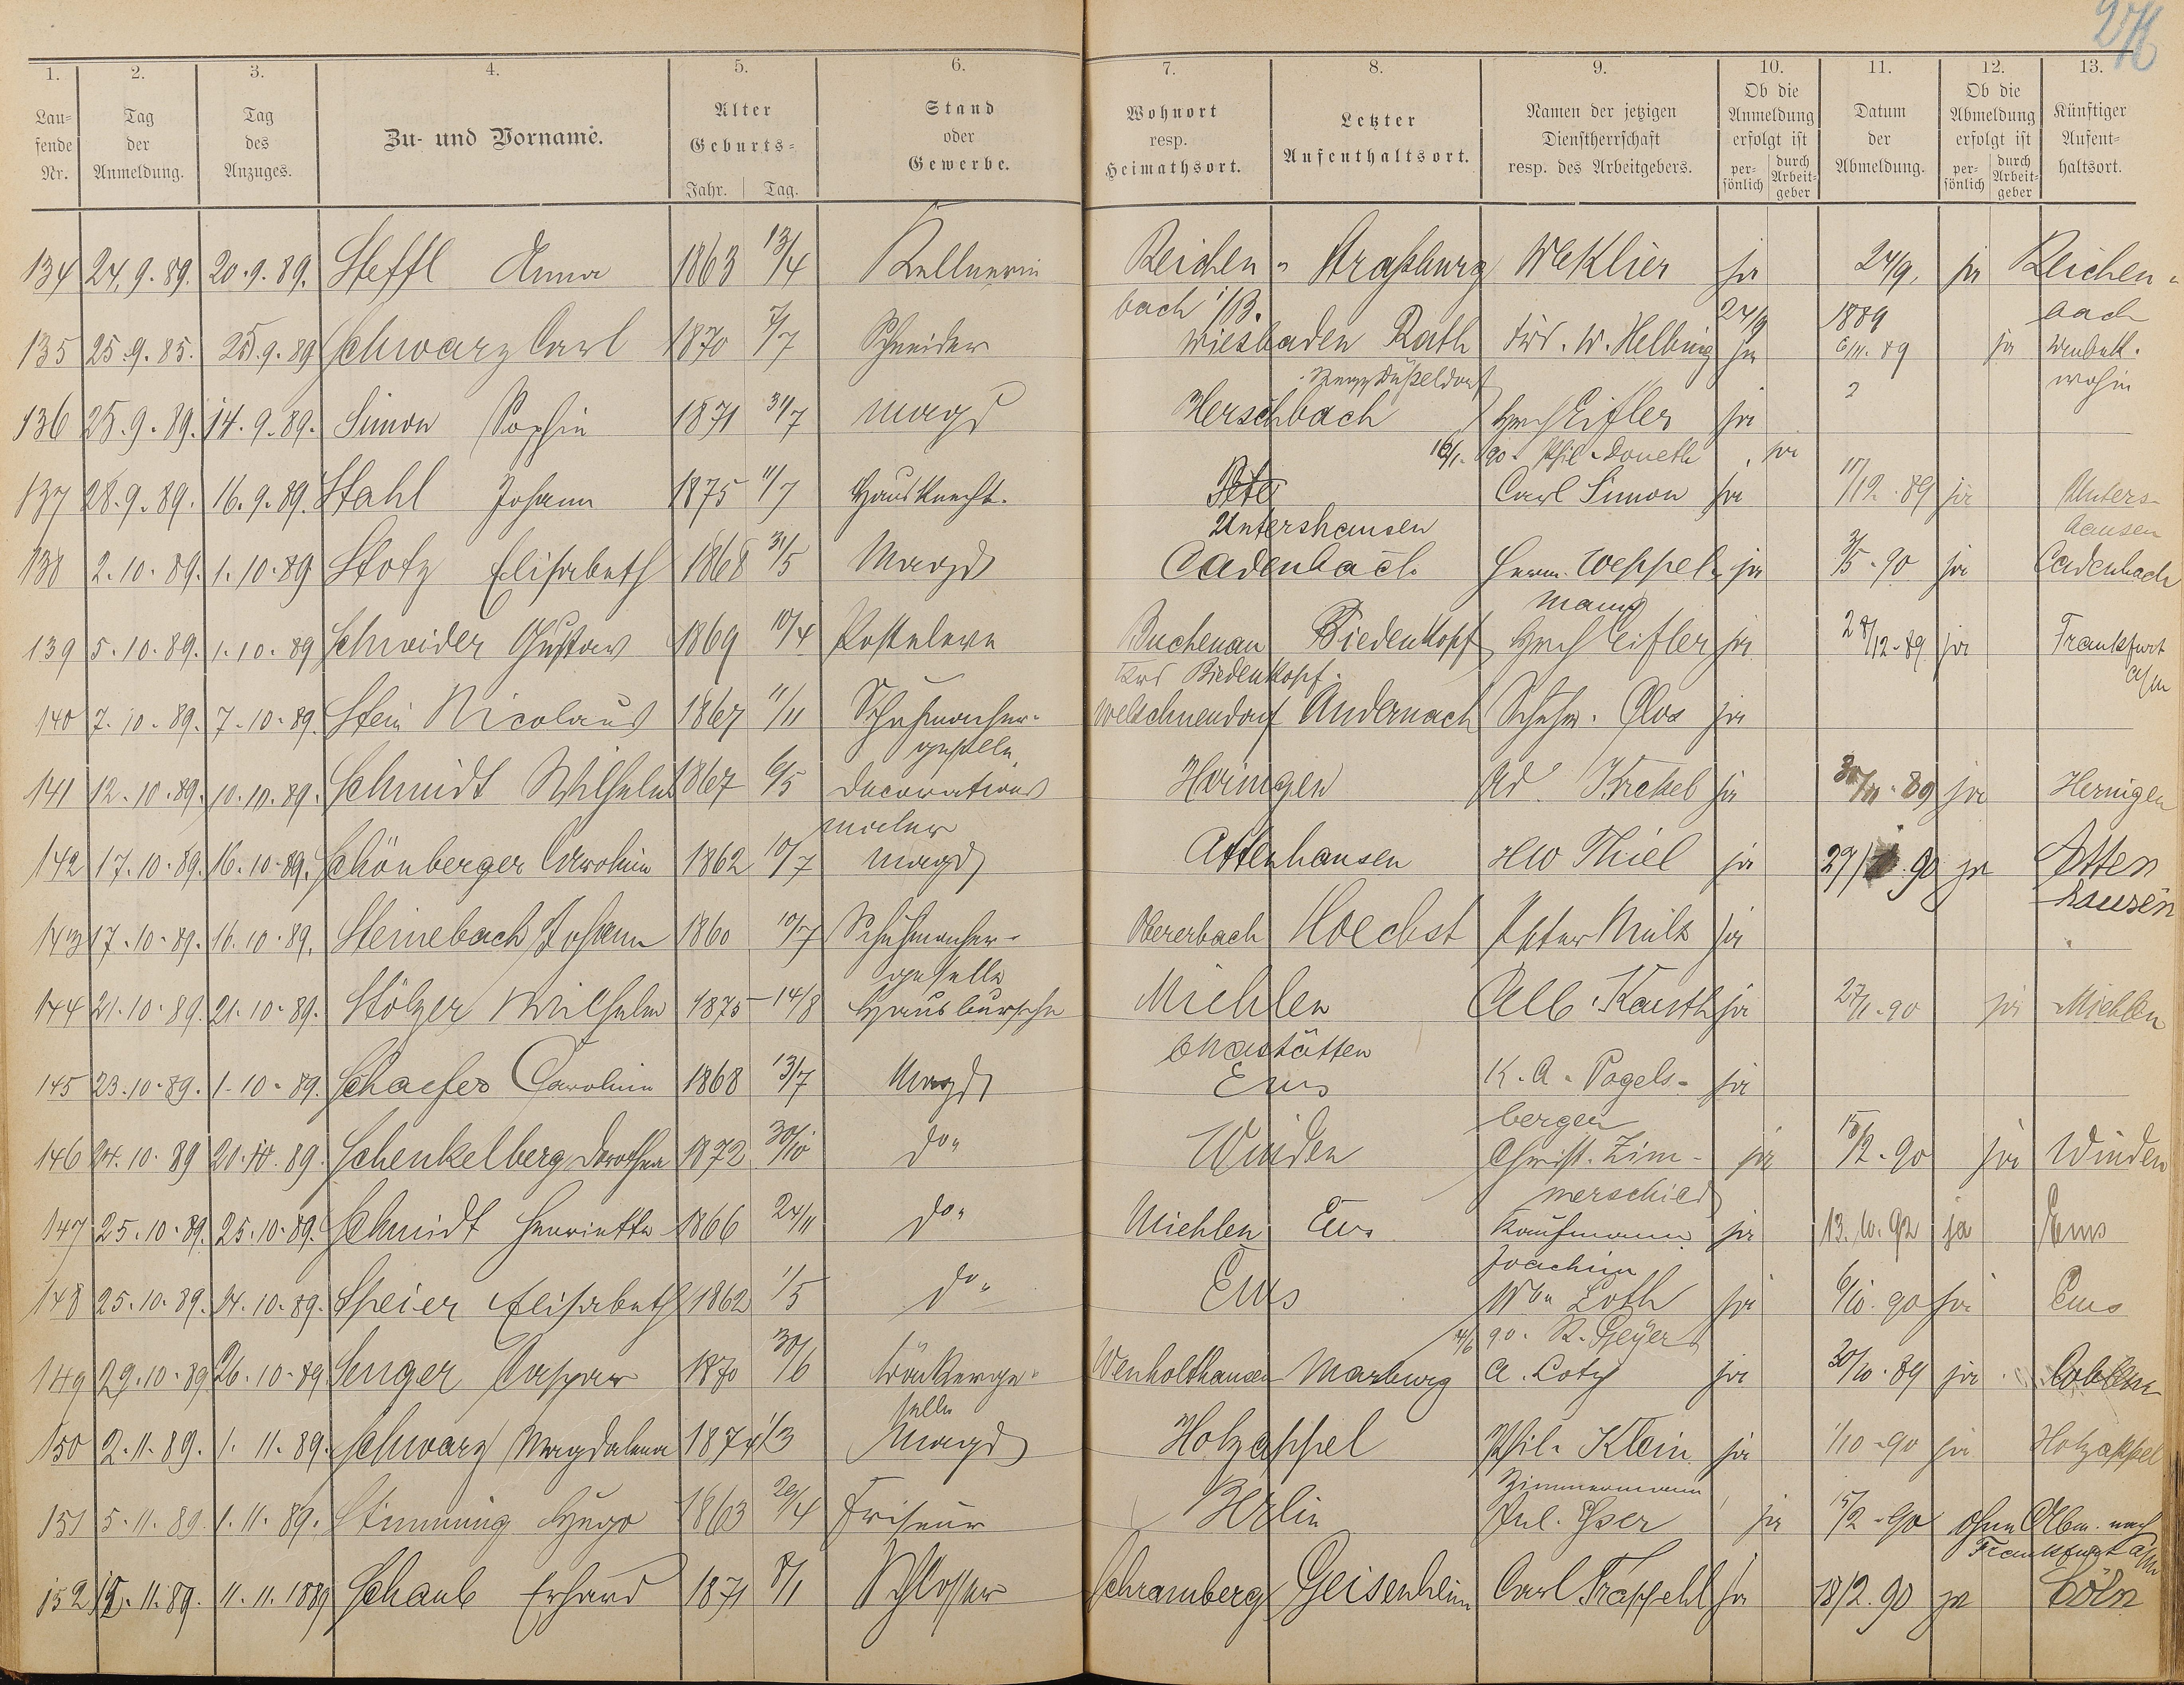 1. 2. 3. 4. 5. 6. 7. 8. 9. 10. 11. 12. 13.
Lau-fende Nr. Tag der Anmeldung. Tag des Anzuges. Zu- und Vorname. Alter Geburts= Jahr. Tag. Stand oder Gewerbe. Wohnort resp. Heimathsort. Letzter Aufenthaltsort. Namen der jetzigen Dienstherrschaft resp. des Arbeitgebers. Ob die Anmeldung erfolgt ist per-sönlich durch Arbeit-geber Datum der Abmeldung. Ob die Abmeldung erfolgt ist per-sönlich durch Arbeit-geber Künftiger Aufent-haltsort.
134 24.9.89. 20.9.89. Steffl Anna 1863 13/4 Kellnerin Reichen- Straßburg ja 24/9. ja Reichen-
bach i/B. 24/9 1889 bach
135 25.9.85. 25.9.89 Schwarz Carl 1870 7/7 Schneider Wiesbaden Rath W. Helbing ja 6/11.89 ja Unbek.
Düßeldorf wohin
136 25.9.89. 14.9.89. Simon Sophie 1871 31/7 Magd Herschbach Hch Eifler ja
90. Phil. Doneth ja
137 28.9.89. 16.9.89. Stahl Johann 1875 11/7 Hausknecht. Carl Simon ja 17/12.89 ja Unters-
Untershausen hausen
138 2.10.89. 1.10.89 Stotz Elisabeth 1868 31/5 Magd Cadenbach Herm. Weppel- ja 3/5.90 ja Cadenbach
mann
139 5.10.89. 1.10.89 Schneider Gustav 1869 10/4 Posteleve Buchenau Biedenkopf Hch Eifler ja 28/12.89 ja Frankfurt
Krs Biedenkopf. a/m
140 7.10.89. 7.10.89. Stein Nicolaus 1867 11/11 Schuhmacher- Welschneudorf Andernach Schuhm. Clos ja
geselle
141 12.10.89. 10.10.89. Schmidt Wilhelm 1867 6/5 Decorations Heringen Ad. Krekel ja 30/11.89 ja Heringen
maler
142 17.10.89. 16.10.89. Schönberger Carolina 1862 10/7 Magd Attenhausen HW Thiel ja 90 ja Atten
hausen
143 17.10.89. 16.10.89. Steinebach Johann 1860 10/7 Schuhmacher- Obererbach Hoechst Peter Mülz ja
geselle
144 21.10.89. 21.10.89. Stölzer Wilhelm 1875 14/8 Hausbursche Miehlen Alb. Kauth ja 27/1.90 ja Miehlen
Nastätten
145 23.10.89. 1.10.89. Schaefer Carolina 1868 13/7 Magd Ems K.A. Vogels- ja
berger
146 24.10.89 20.10.89. Schenkelberg Dorothea 1872 30/10 do. Winden Christ. Zim- ja 15/2.90 ja Winden
merschied
147 25.10.89. 25.10.89. Schmidt Henriette 1866 24/11 do. Miehlen Ems Kaufmann ja 13.10.92 ja Ems
Joachim
148 25.10.89. 24.10.89. Speier Elisabeth 1862 1/5 do. Ems Wwe Loth ja 6/10.90 ja Ems
4/6 90. R. Geyer
149 29.10.89 26.10.89 Senger Caspar 1870 30/6 Bäckerge- Wenholthausen Marburg A. Loty ja 30/10.89 ja Coblenz
selle
150 2.11.89. 1.11.89. Schwarz Magdalena 1874 1/3 Magd Holzappel Phil. Klein ja 1/10.90 ja Holzappel
Zimmermann
151 5.11.89. 1.11.89. Stimming Hugo 1863 20/4 Friseur Berlin Jul. Eser ja 15/2.90 ohne Abm. nach
Frankfurt a/m
152 12.11.89. 11.11.1889 Schaub Erhard 1871 8/1 Schlosser Schramberg Geisenheim Carl Trappehl ja 18/2.90 ja Cöln